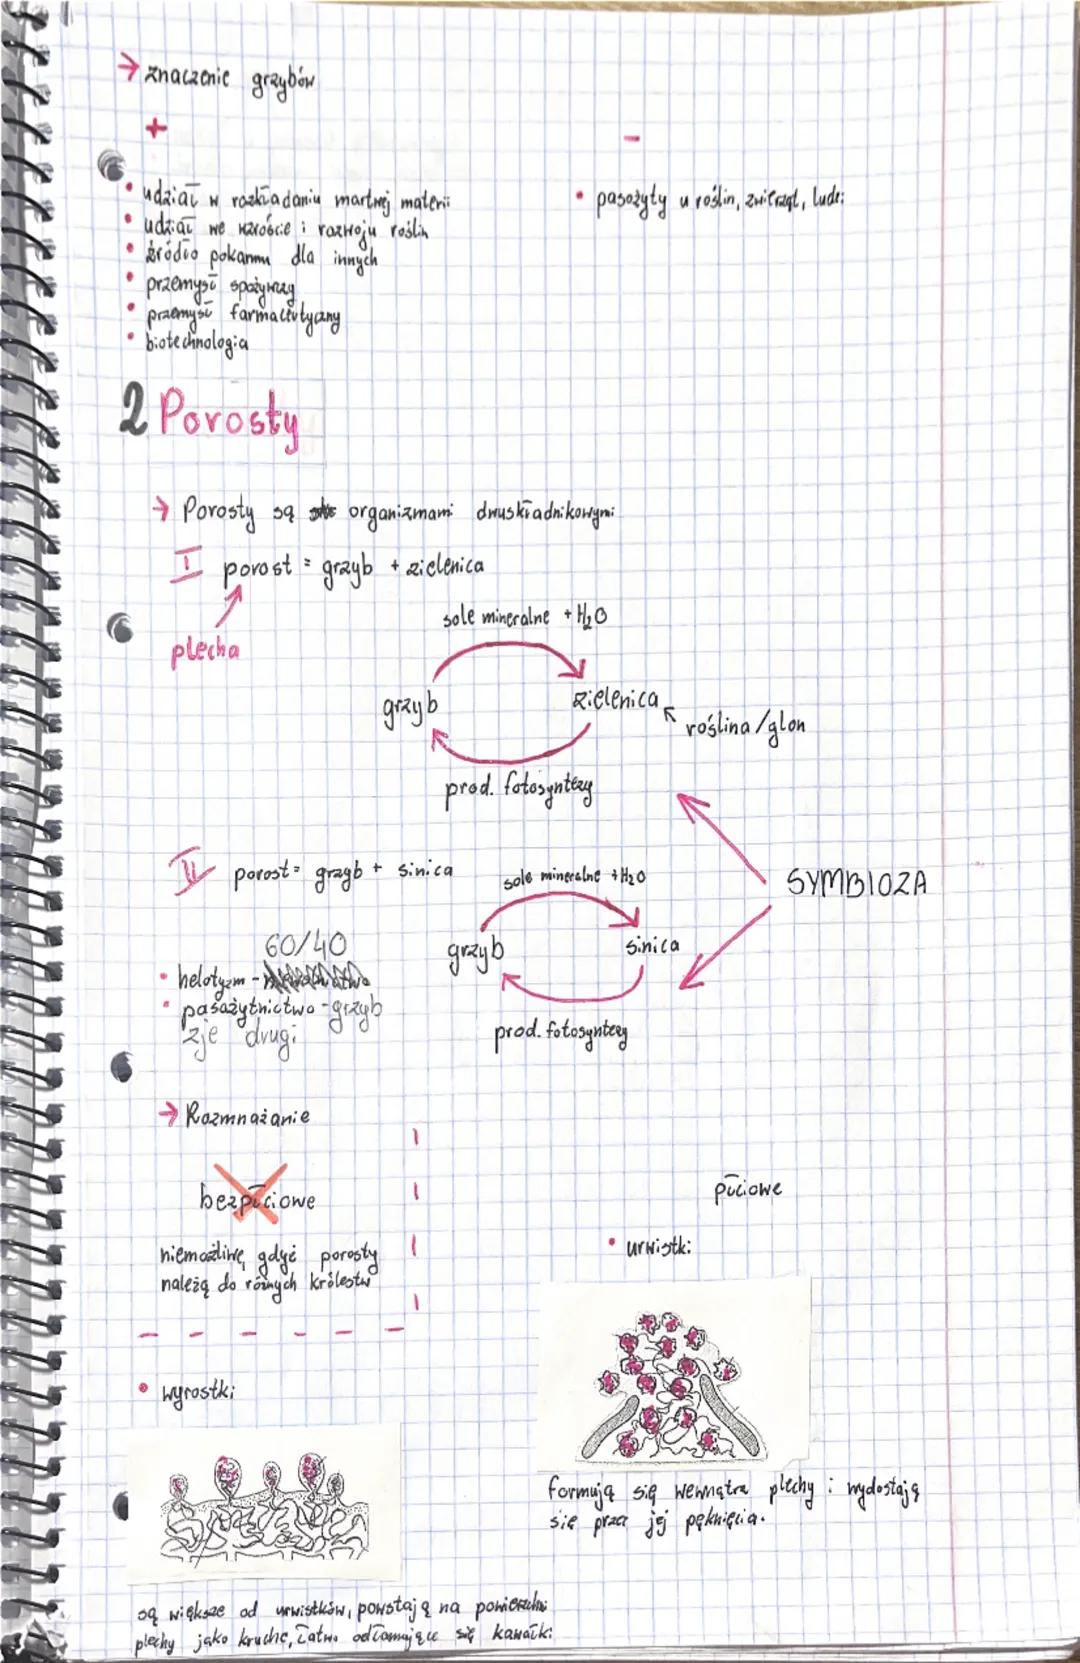 → znaczenie grzybów
+
-
• udział w rozkładaniu martwej materii
• udział we wzroście i rozwoju roślin
• źródło pokarmu dla innych
• przemysł spożywczy
• przemysł farmaceutyczny
• biotechnologia
• pasożyty u roślin, zwierząt, ludzi
2 Porosty
→ Porosty są organizmami dwuskładnikowymi
I porost = grzyb + zielenica
plecha
sole mineralne + H₂O
grzyb
zielenica
roślina/glon
prod. fotosyntezy
II porost = grzyb + sinica
sole mineralne + H₂O
SYMBIOZA
grzyb
sinica
prod. fotosyntezy
60/40
• helotyzm -
• pasażytnictwo - grzyb
zje drugi
→ Rozmnażanie
bezpłciowe
niemożliwe, gdyż porosty
należą do różnych królestw
płciowe
• urwistki
formują się wewnątrz plechy i wydostają
się przez jej pęknięcia.
• wyrostki
są większe od urwistków, powstają na powierzchni
plechy jako kruche, łatwo odłamujące się kawałki